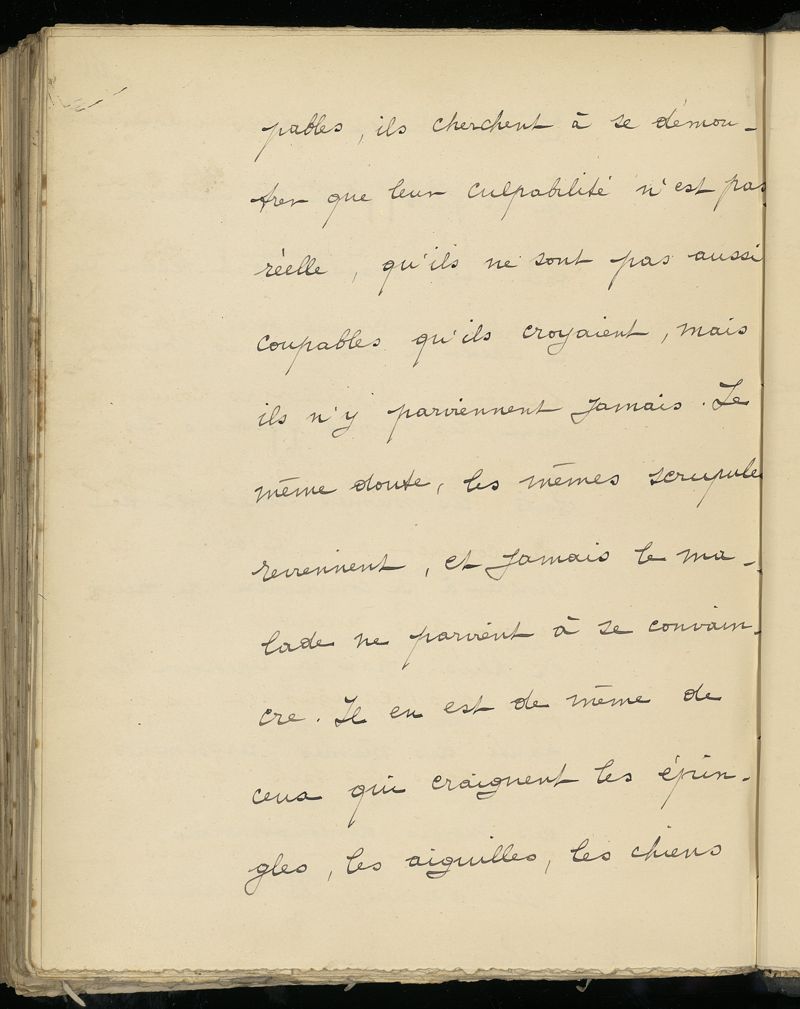 pables, ils cherchent à se démon-
trer que leur culpabilité n'est pas
réelle, qu'ils ne sont pas aussi
coupables qu'ils croyaient, mais
ils n'y parviennent jamais. Le
même doute, les mêmes scrupules
reviennent, et jamais le ma-
lade ne parvient à se convain-
cre. Il en est de même de
ceux qui craignent les épin-
gles, les aiguilles, les chiens